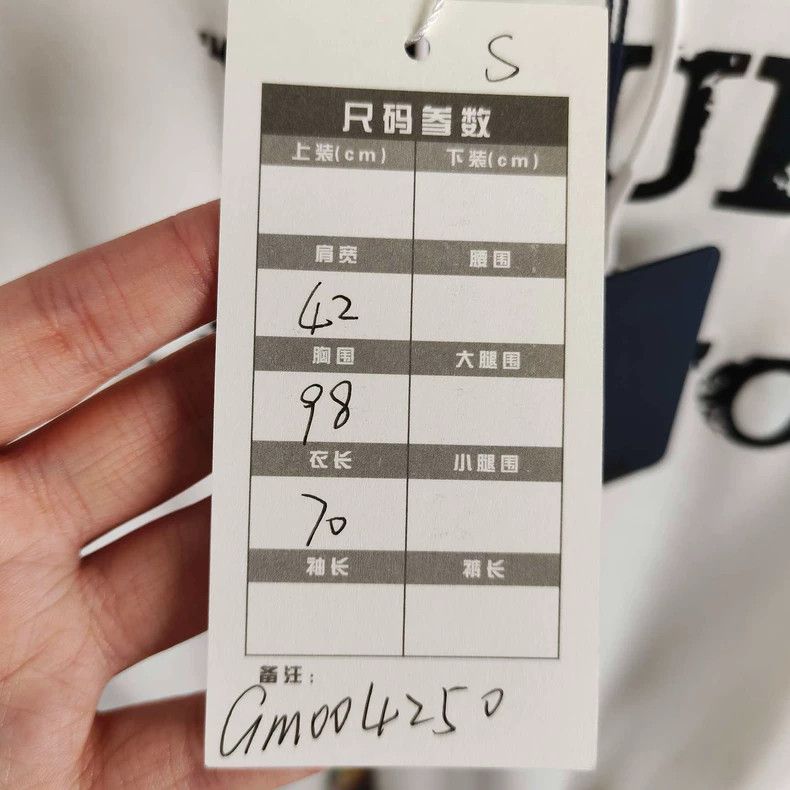 S
尺码参数
上装(cm) 下装(cm)
肩宽 腰围
42
胸围 大腿围
98
衣长 小腿围
70
袖长 裤长
备注：
Gm004250